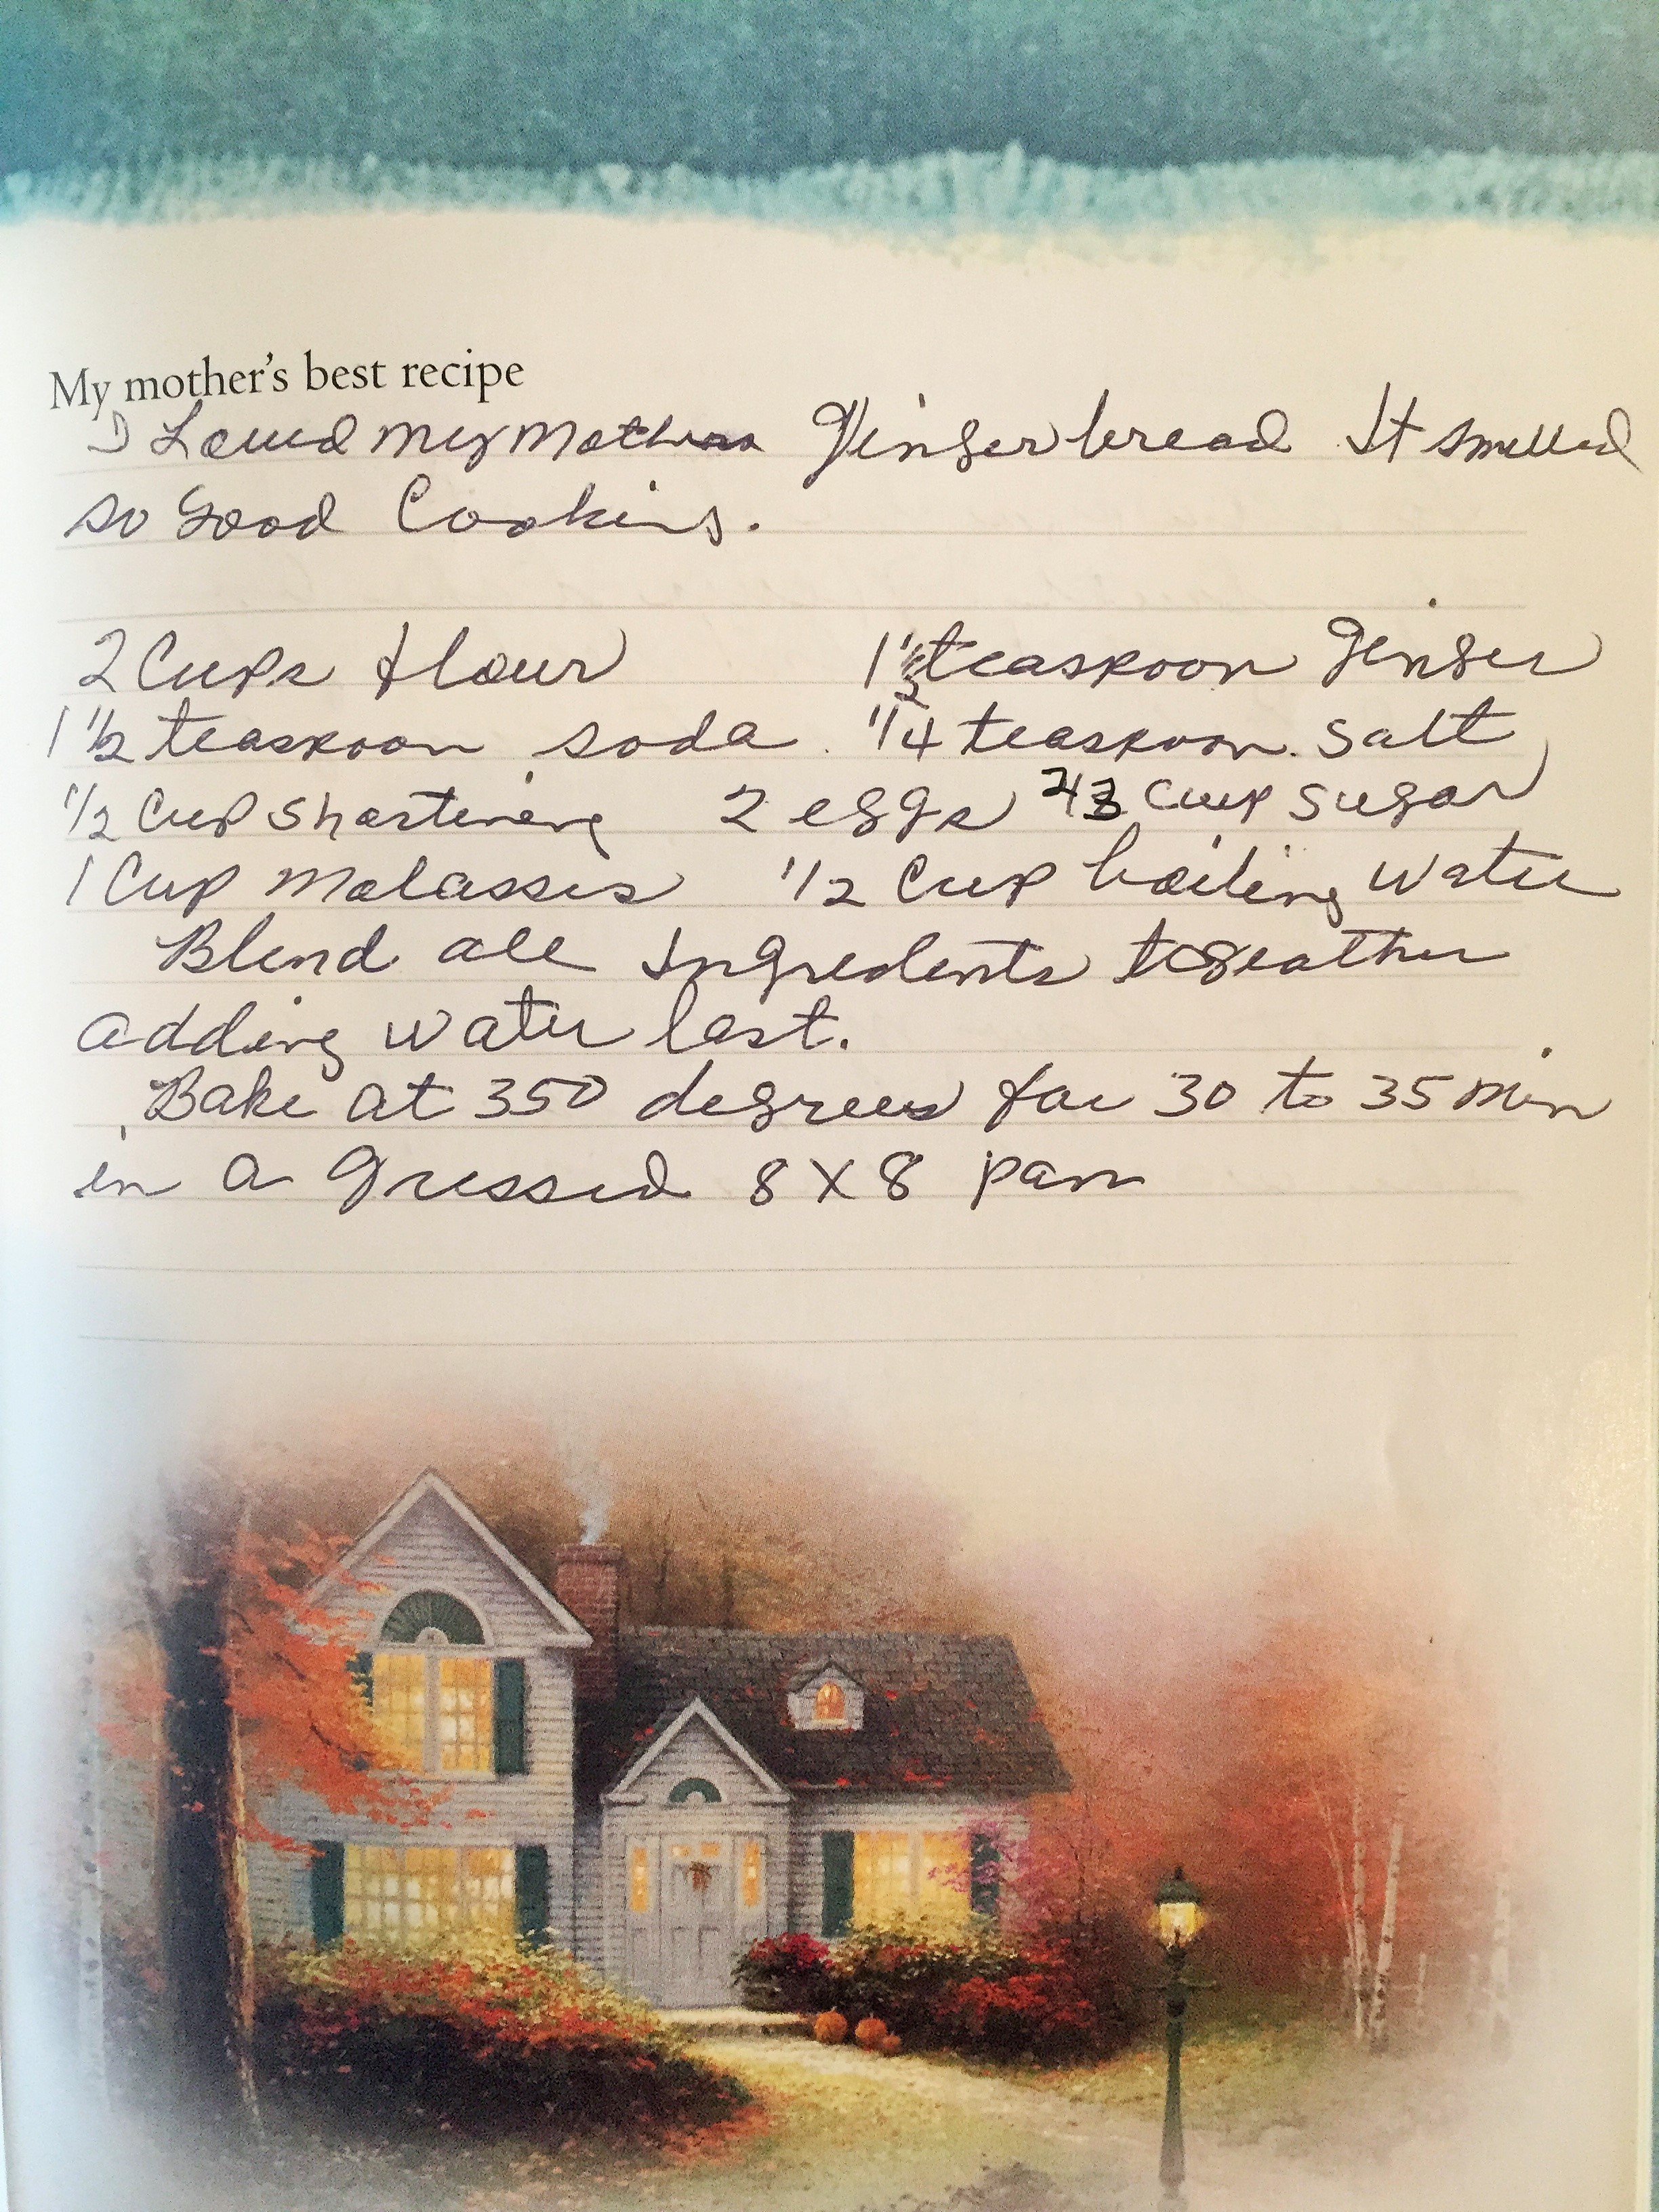 My mother's best recipe
I Loved my Mothers Gingerbread It smelled
so Good Cooking.
2 Cups flour 1 1/2 teaspoon ginger
1 1/2 teaspoon soda 1/4 teaspoon salt
1/2 Cup shortening 2 eggs cup sugar
1 Cup Molasses 1/2 Cup boiling water
Blend all Ingredents togeather
adding water last.
Bake at 350 degrees for 30 to 35 min
in a gressed 8 X 8 pan